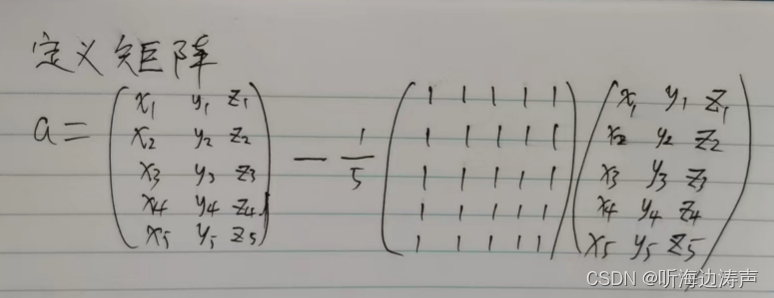 定义矩阵
a = \begin{pmatrix} x_1 & y_1 & z_1 \\ x_2 & y_2 & z_2 \\ x_3 & y_3 & z_3 \\ x_4 & y_4 & z_4 \\ x_5 & y_5 & z_5 \end{pmatrix} - \frac{1}{5} \begin{pmatrix} 1 & 1 & 1 & 1 & 1 \\ 1 & 1 & 1 & 1 & 1 \\ 1 & 1 & 1 & 1 & 1 \\ 1 & 1 & 1 & 1 & 1 \\ 1 & 1 & 1 & 1 & 1 \end{pmatrix} \begin{pmatrix} x_1 & y_1 & z_1 \\ x_2 & y_2 & z_2 \\ x_3 & y_3 & z_3 \\ x_4 & y_4 & z_4 \\ x_5 & y_5 & z_5 \end{pmatrix}
CSDN @听海边涛声